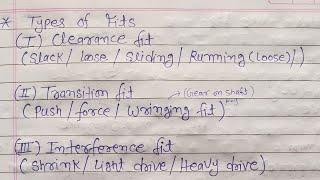 * Types of Fits
(I) Clearance fit
(Slack / loose / Sliding / Running (loose)/)
(II) Transition fit
(Gear on shaft)
(Push / force / Wringing fit)
(III) Interference fit
(Shrink / Light drive / Heavy drive)